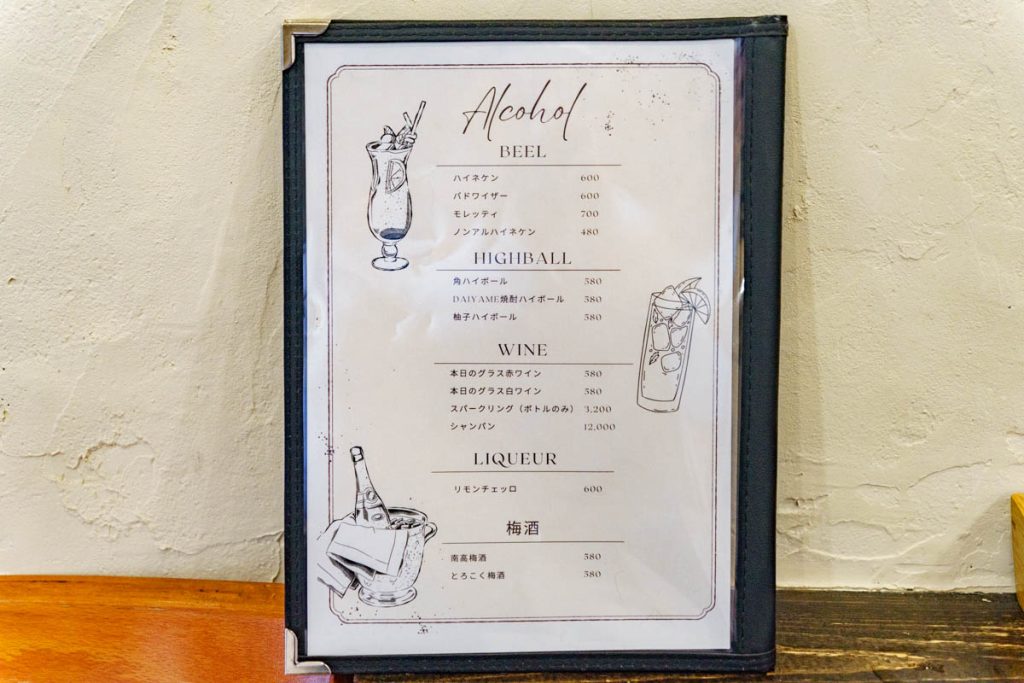 Alcohol
BEEL
ハイネケン 600
バドワイザー 600
モレッティ 700
ノンアルハイネケン 480
HIGHBALL
角ハイボール 580
DAIYAME焼酎ハイボール 580
柚子ハイボール 580
WINE
本日のグラス赤ワイン 580
本日のグラス白ワイン 580
スパークリング（ボトルのみ） 3,200
シャンパン 12,000
LIQUEUR
リモンチェッロ 600
梅酒
南高梅酒 580
とろこく梅酒 580